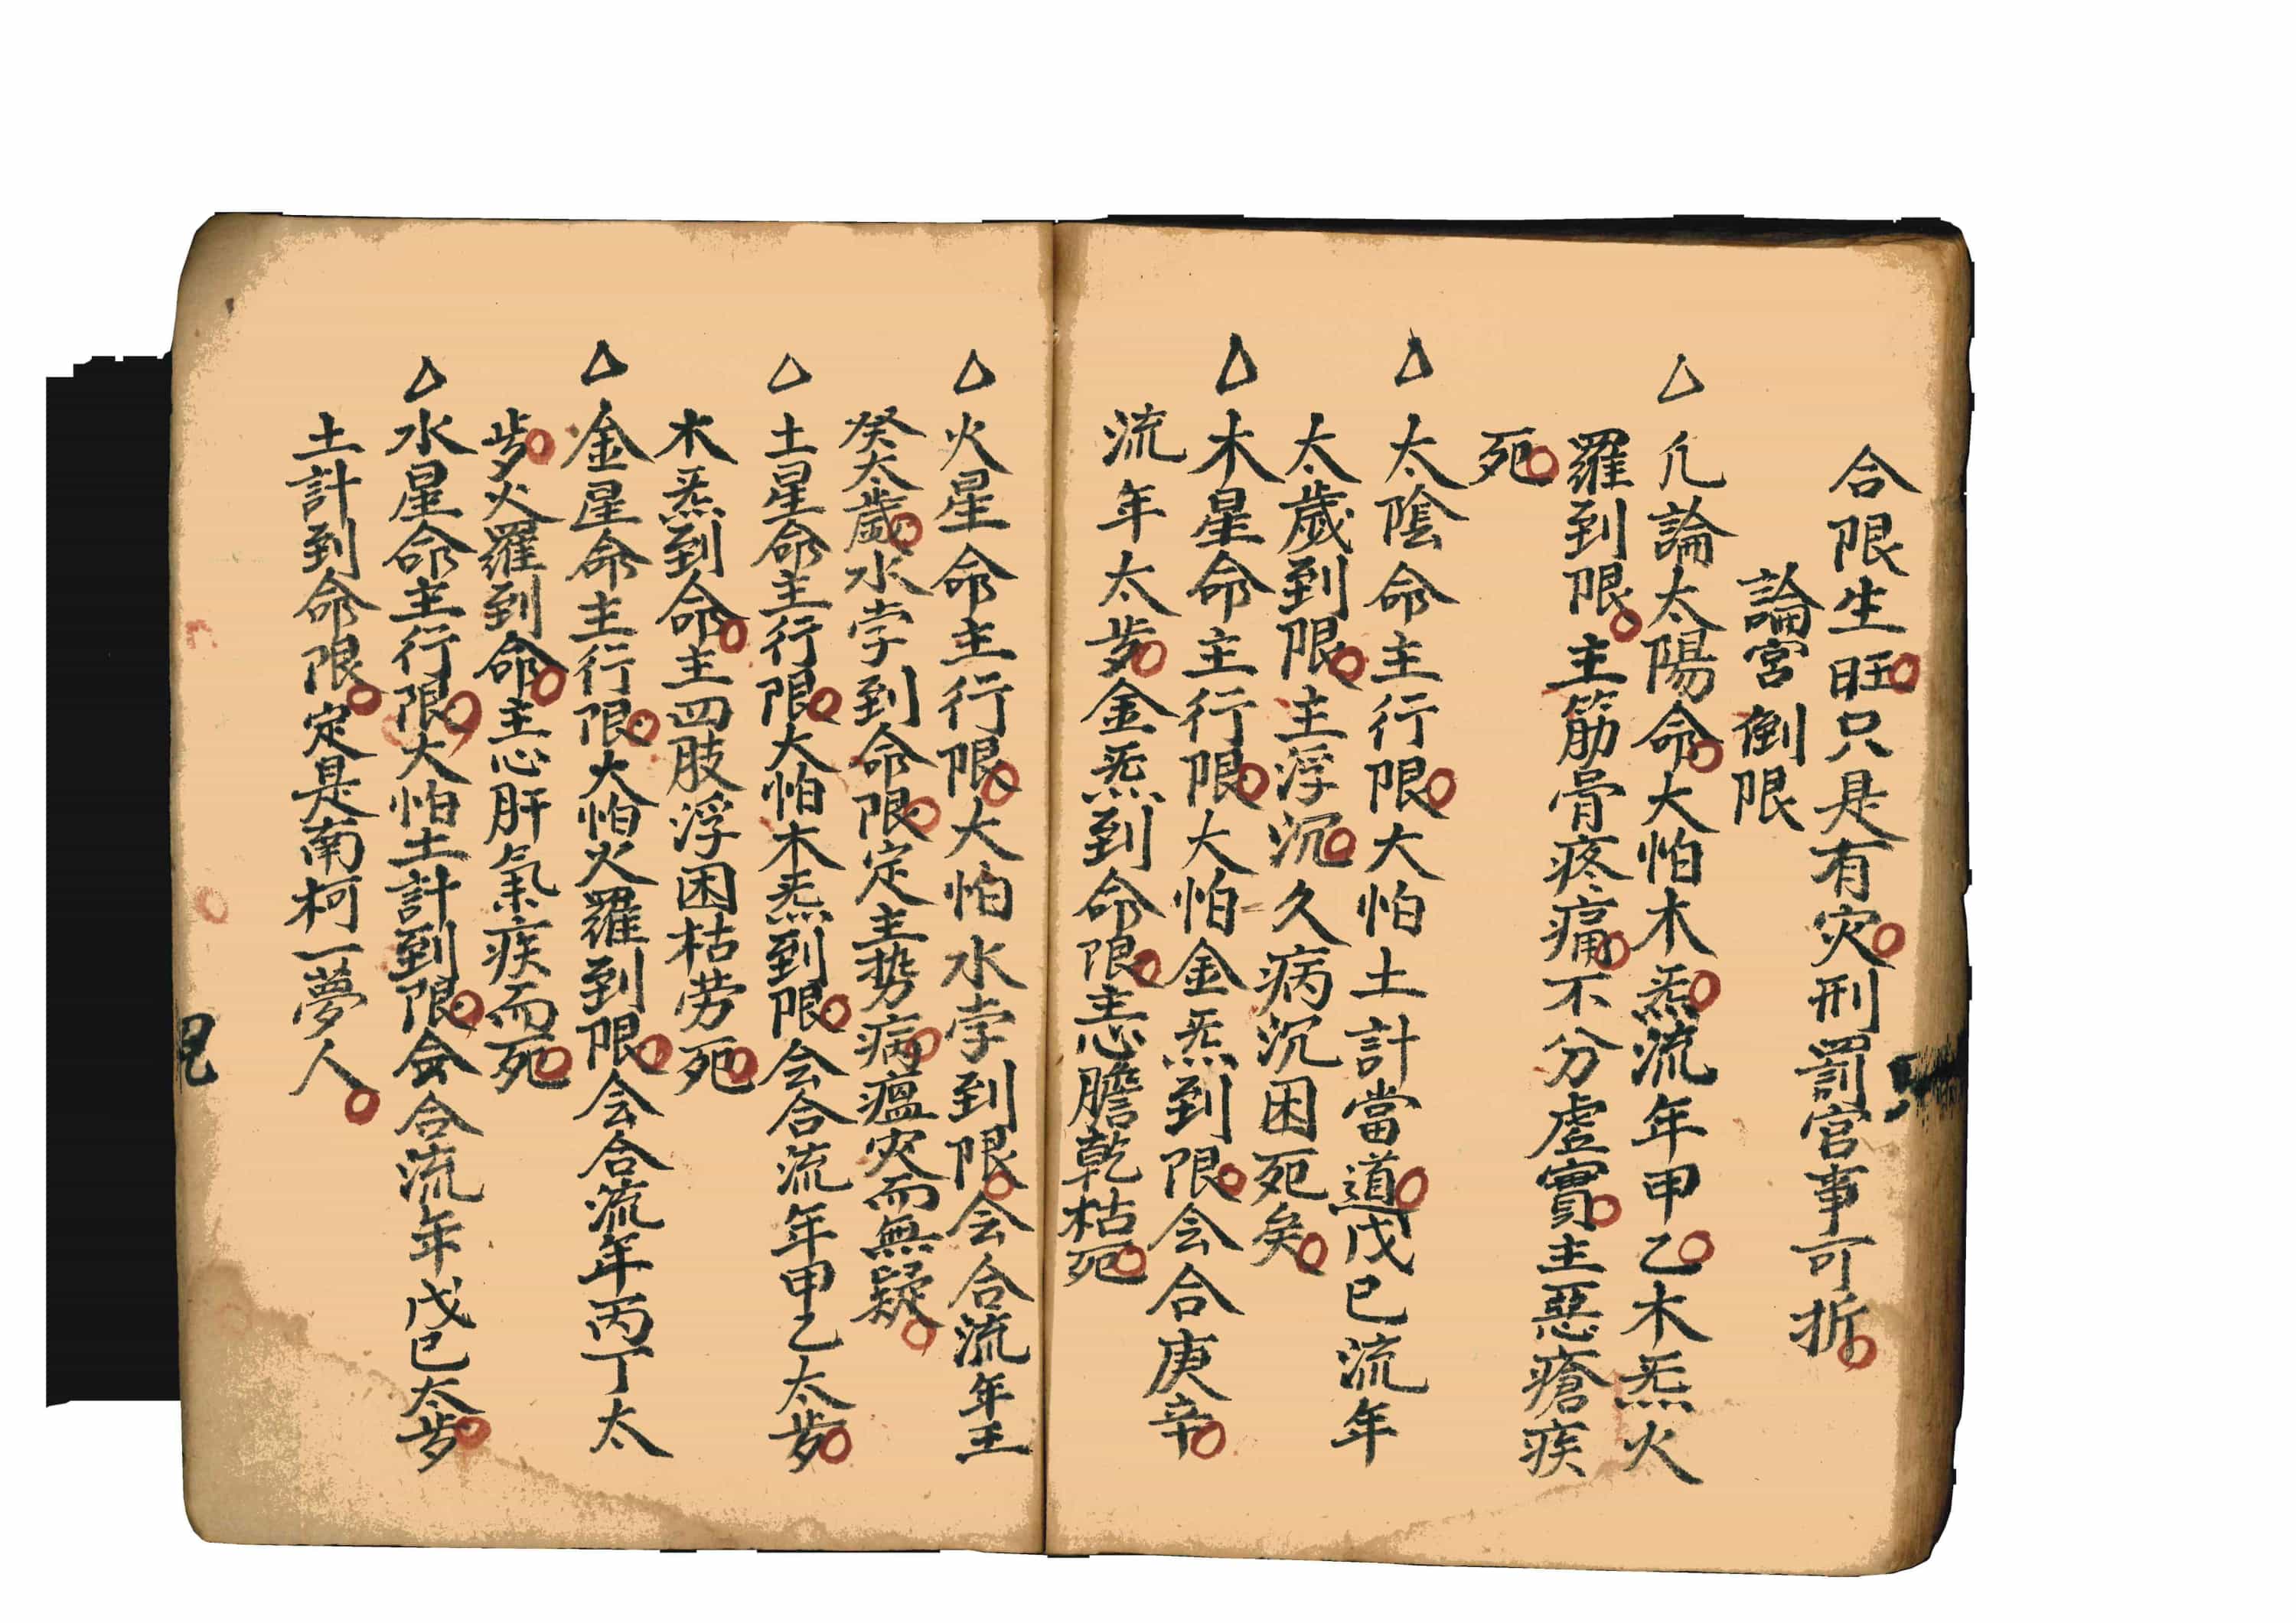 合限生旺只是有灾刑罰官事可折
論宮倒限
△凢論太陽命大怕木炁流年甲乙木炁火
羅到限主筋骨疼痛不分虚實主惡瘡疾
死
△太陰命主行限大怕土計當道戊己流年
太歲到限主浮沉久病沉困死矣
△木星命主行限大怕金炁到限会合庚辛
流年太岁金炁到命限恚膽乾枯死
△火星命主行限大怕水孛到限会合流年王
癸太歲水孛到命限定主势病瘟灾而無疑
△土星命主行限大怕木炁到限会合流年甲乙太岁
木炁到命主四肢浮困枯劳死
△金星命主行限大怕火羅到限会合流年丙丁太
岁火羅到命主心肝氣疾而死
△水星命主行限大怕土計到限会合流年戊己太岁
土計到命限定是南柯一夢人